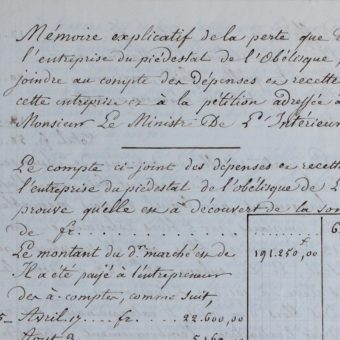 Mémoire explicatif de la perte que
l'entreprise du piédestal de l'Obélisque
joindre au compte des dépenses et recette
cette entreprise et à la pétition adressée à
Monsieur Le Ministre De L'Intérieur
Le compte ci-joint des dépenses et recette
l'entreprise du piédestal de l'obélisque de L
prouve qu'elle est à découvert de la som
de fr.
Le montant du dt marché est de 191.250,00
Il a été payé à l'entrepreneur
des à-comptes, comme suit,
Avril 17 .... fr. .. 22.600,00
Aout 3